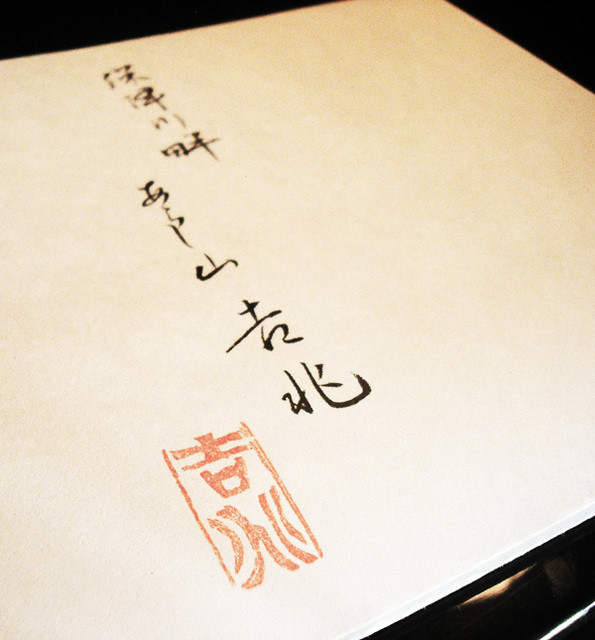 保津川畔
あらし山
吉兆
吉兆